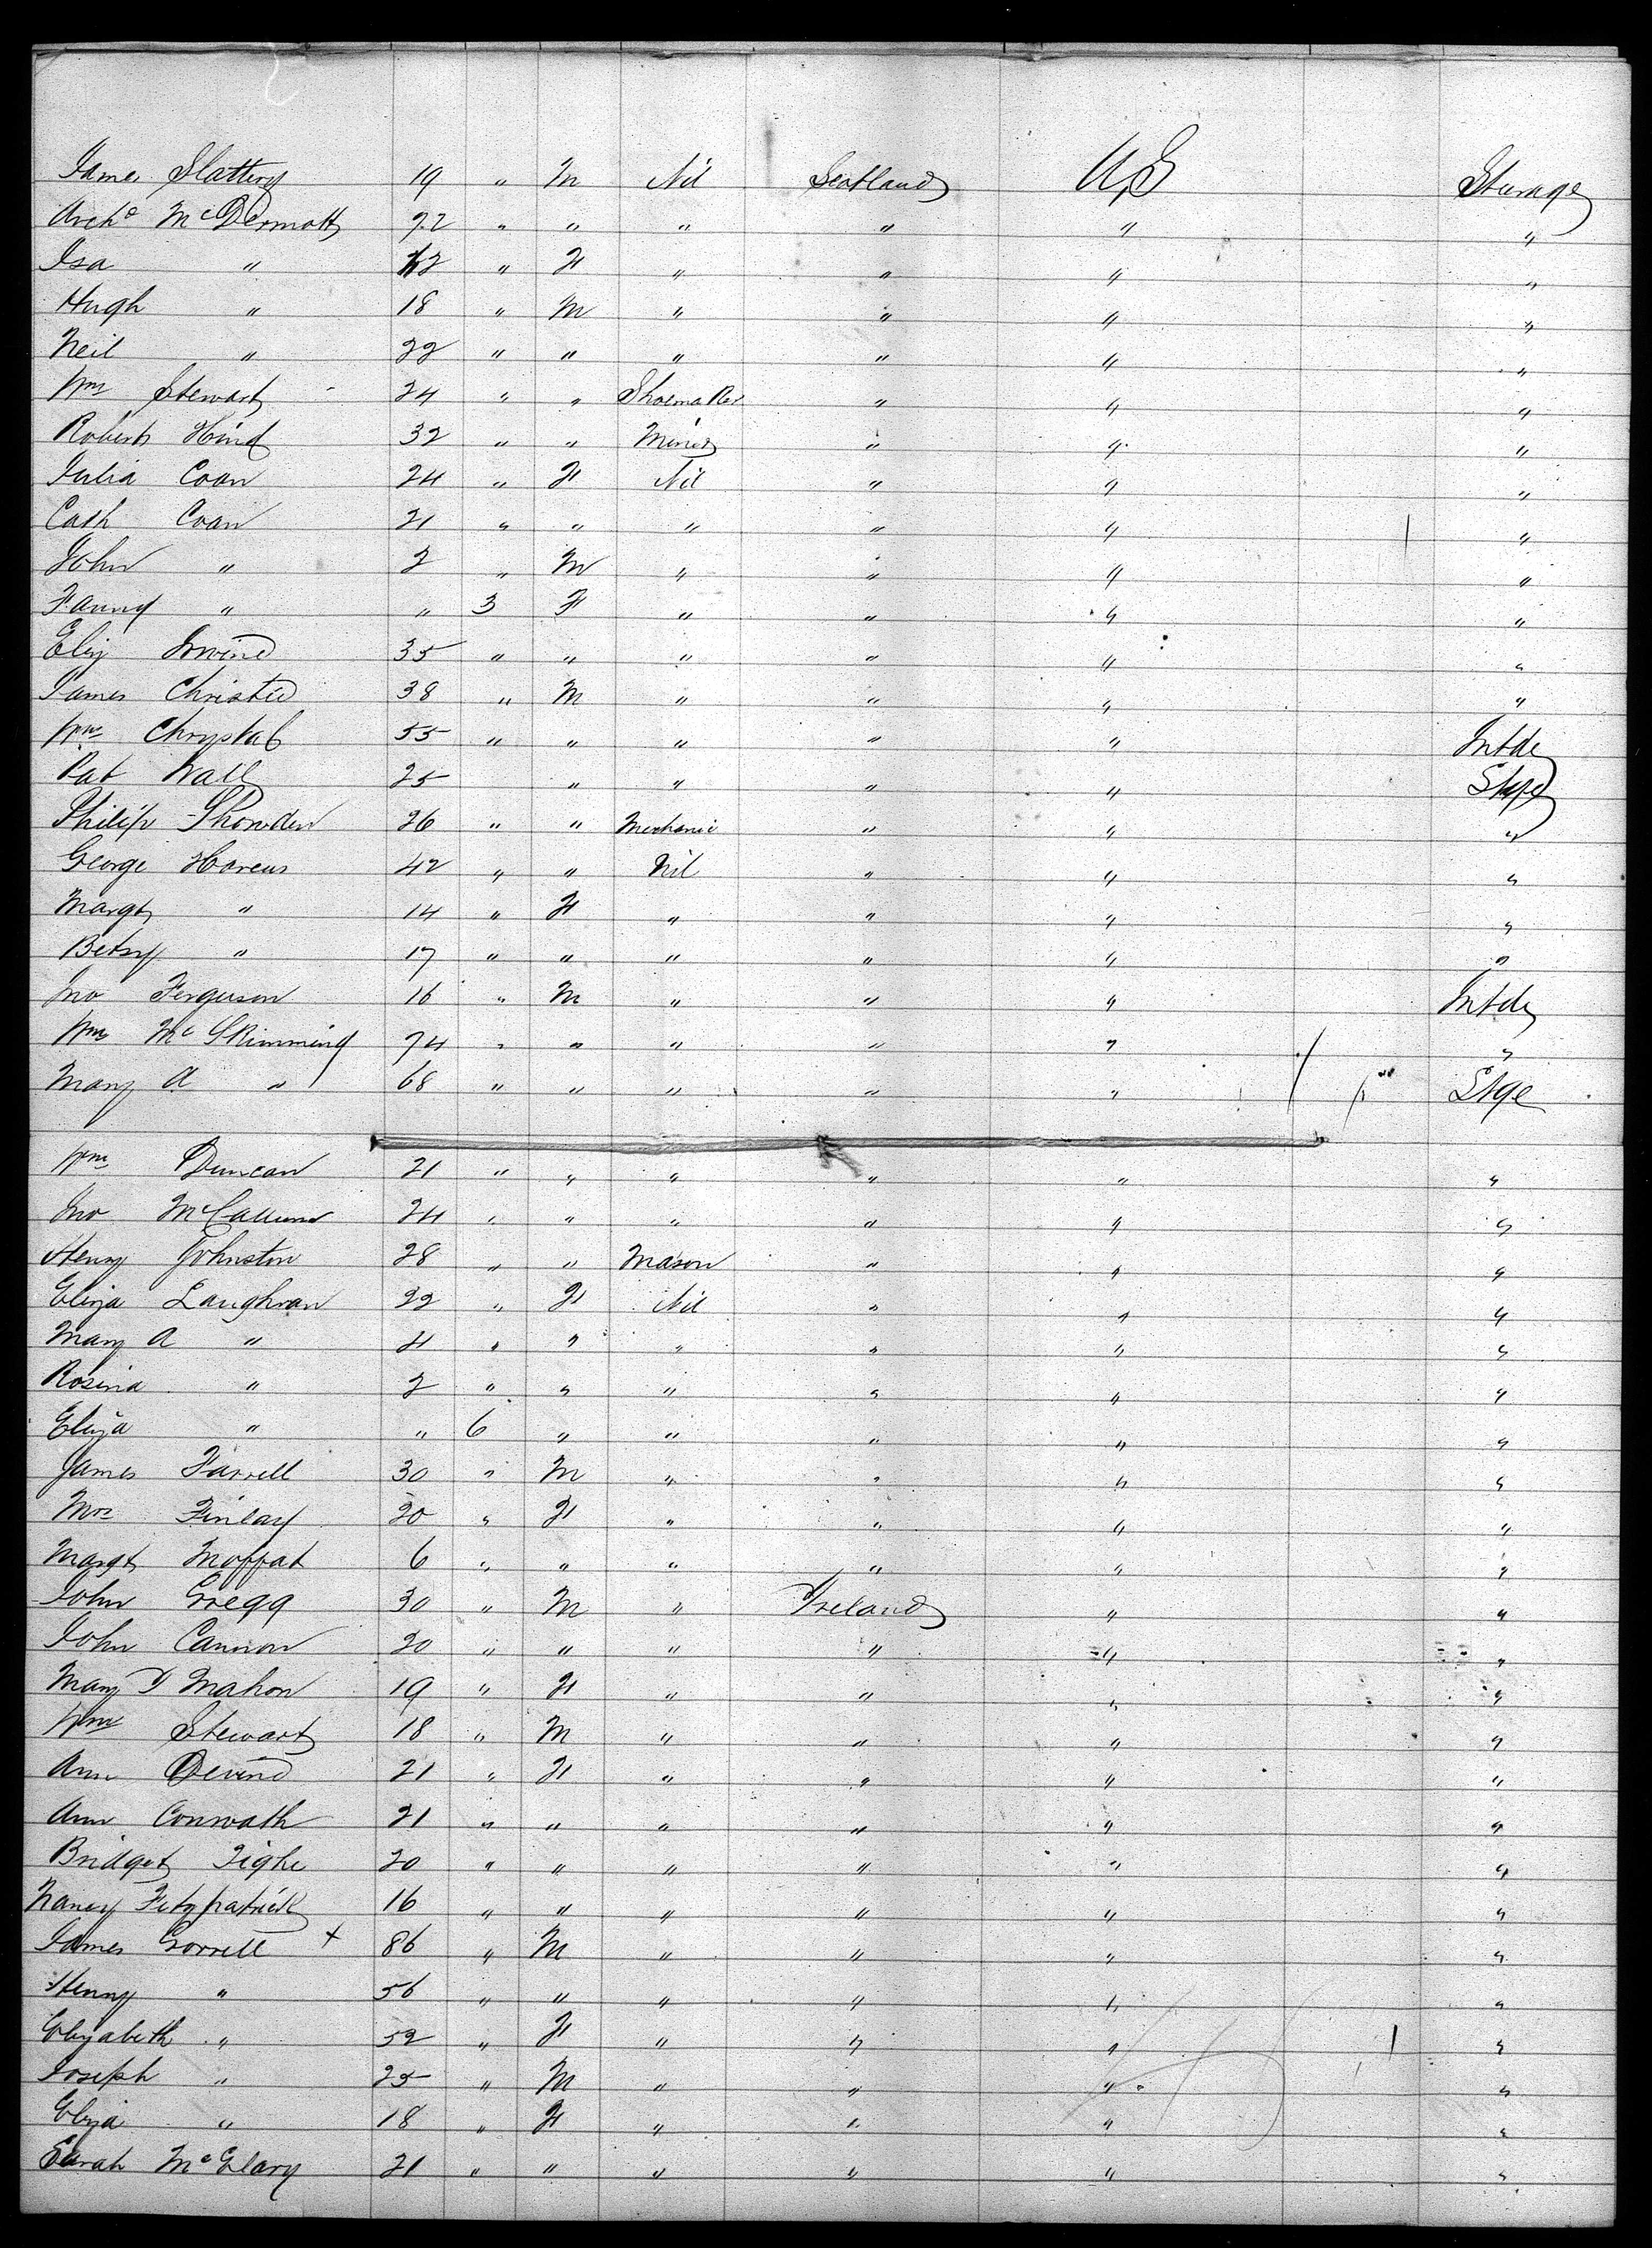 James Slattery 19 " M Nil Scotland US Steerage
Archd McDermott 22 " " " " " "
Isa " " F " " " "
Hugh " 18 " M " " " "
Neil " 22 " " " " " "
Wm Stewart 24 " " Shoemaker " " "
Robert Hind 32 " " Miner " " "
Julia Coan 24 " F Nil " " "
Cath Coan 21 " " " " " "
John " 2 " M " " " "
Fanny " " 3 F " " " "
Eliz Irvine 35 " " " " " "
James Christie 38 " M " " " "
Wm Chrystal 55 " " " " " Intde
Pat Wall 25 " " " " Stge
Philip Showden 26 " " Mechanic " " "
George Harcus 42 " " Nil " " "
Margt " 14 " F " " " "
Betsy " 17 " " " " " "
Jno Ferguson 16 " M " " " Intde
Wm McSkimming 74 " " " " " "
Mary A " 68 " " " " " Stge
Wm Duncan 21 " " " " " "
Jno McCallum 24 " " " " " "
Henry Johnston 28 " " Mason " " "
Eliza Laughran 22 " F Nil " " "
Mary A " 4 " " " " " "
Rosina " 2 " " " " " "
Eliza " " 6 " " " " "
James Farrell 30 " M " " " "
Mrs Finlay 20 " F " " " "
Margt Moffat 6 " " " " " "
John Gregg 30 " M " Ireland " "
John Cannon 20 " " " " " "
Mary D Mahon 19 " F " " " "
Wm Stewart 18 " M " " " "
Ann Devine 21 " F " " " "
Ann Conwath 21 " " " " " "
Bridget Tighe 20 " " " " " "
Nancy Fitzpatrick 16 " " " " " "
James Gorrell + 86 " M " " " "
Henry " 56 " " " " " "
Elizabeth " 52 " F " " " "
Joseph " 25 " M " " " "
Eliza " 18 " F " " " "
Sarah McElary 21 " " " " " "